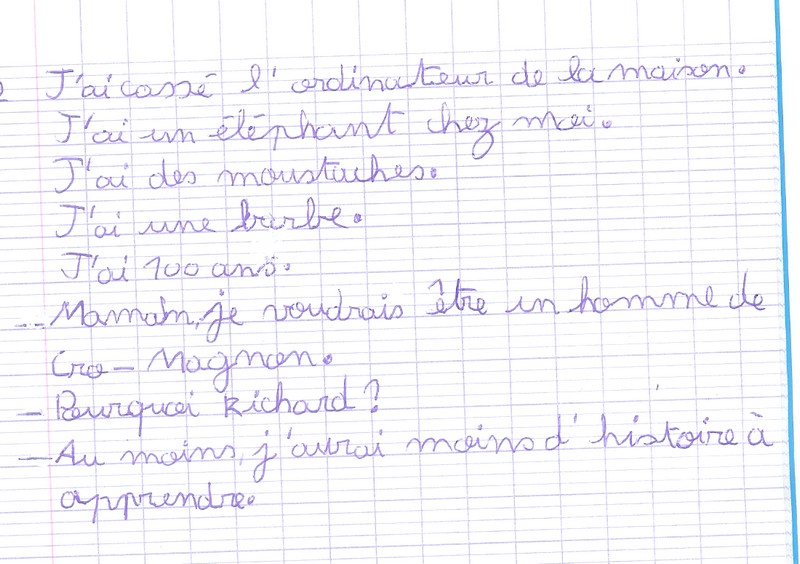 J'ai cassé l'ordinateur de la maison.
J'ai un éléphant chez moi.
J'ai des moustaches.
J'ai une barbe.
J'ai 100 ans.
- Maman, je voudrais être un homme de
Cro-Magnon.
- Pourquoi Richard ?
- Au moins, j'aurai moins d'histoire à
apprendre.